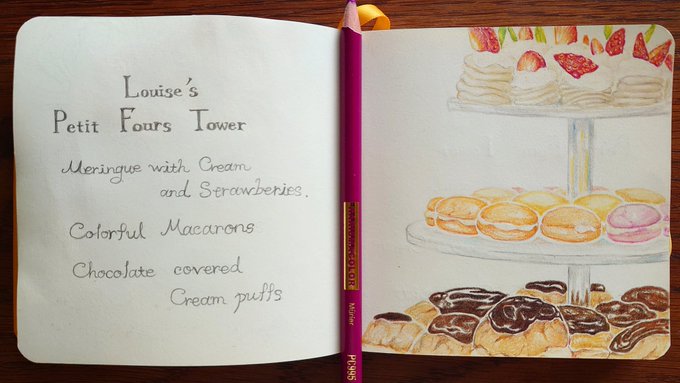 Louise's
Petit Fours Tower
Meringue with Cream
and Strawberries.
Colorful Macarons
Chocolate covered
Cream puffs
PC995